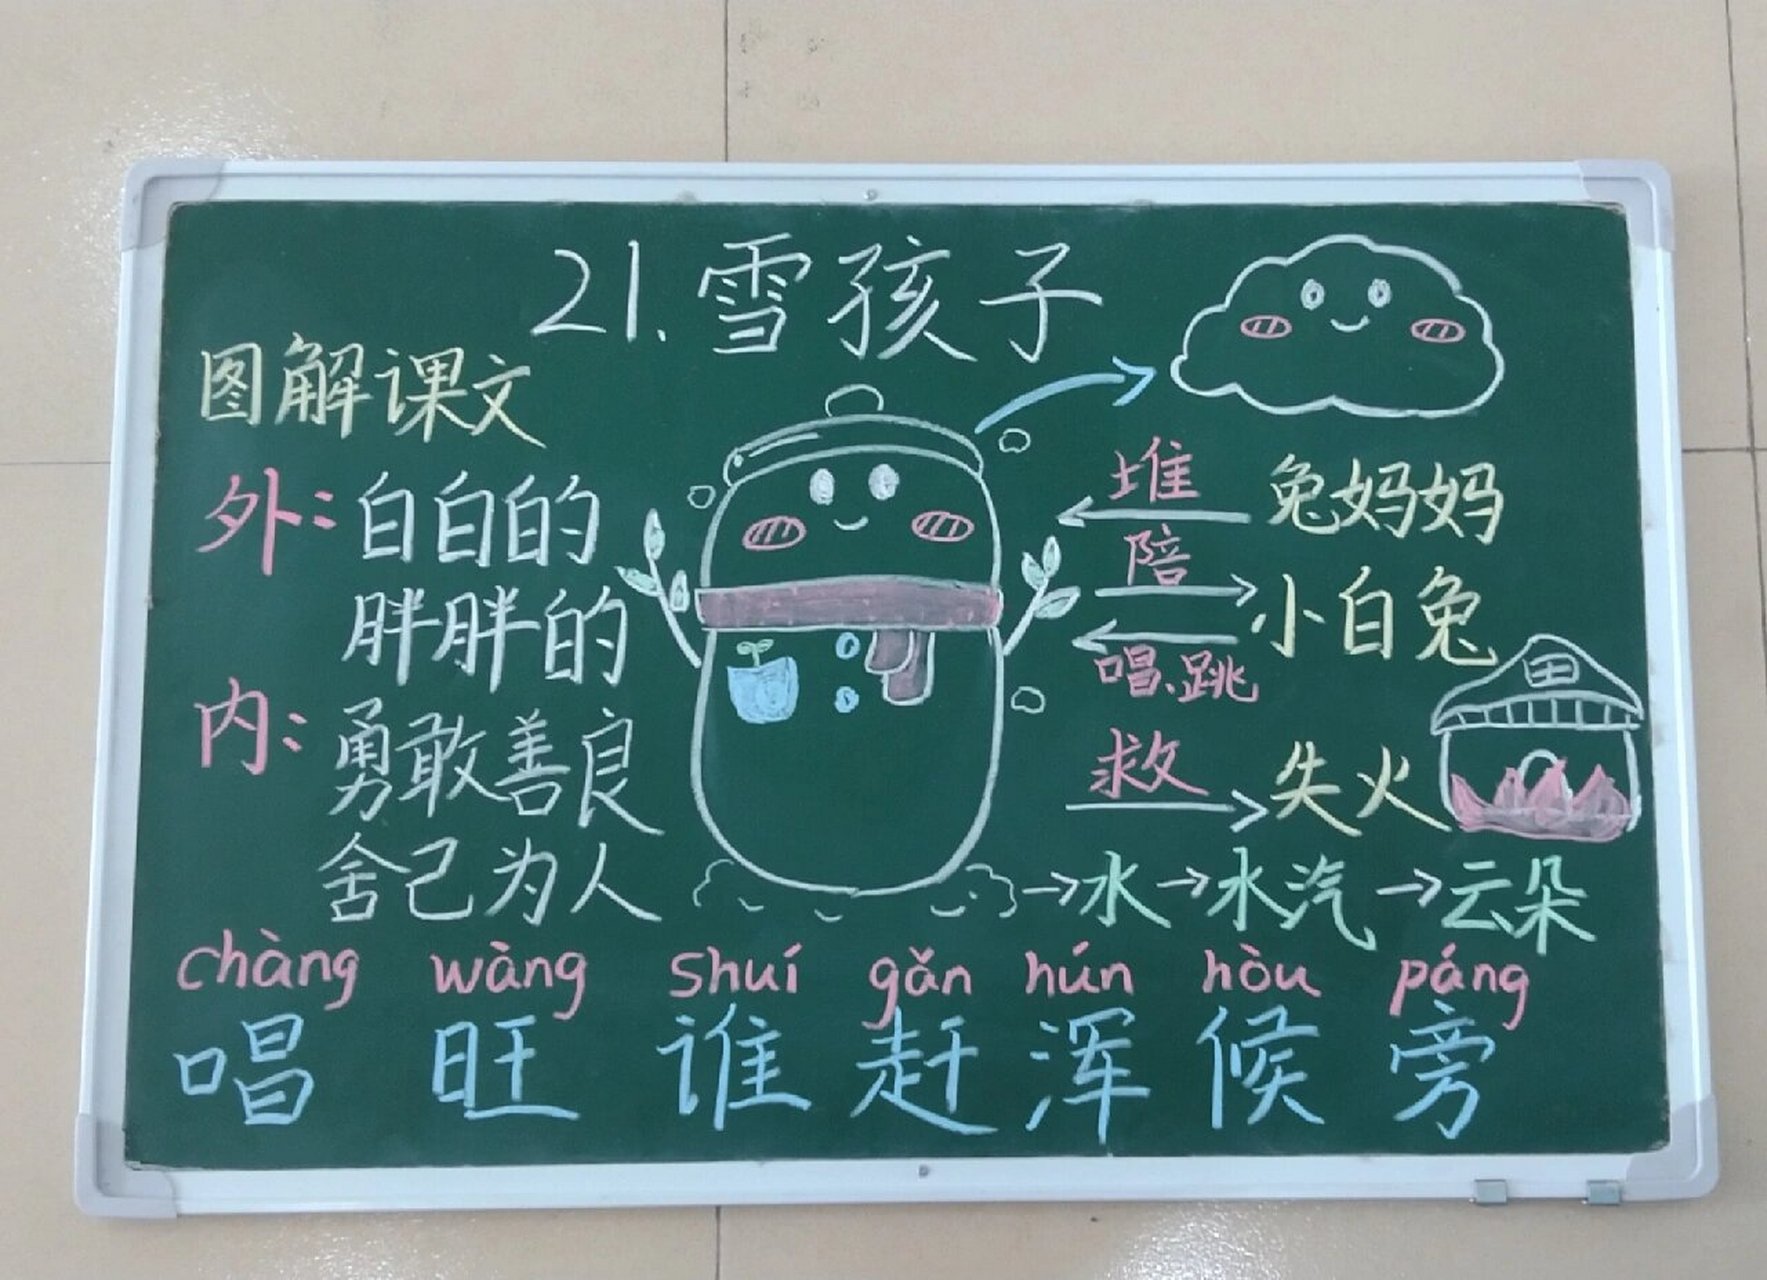 21.雪孩子
图解课文
外:白白的
胖胖的
内:勇敢善良
舍己为人
堆 兔妈妈
陪
小白兔
唱、跳
救 失火
→水→水汽→云朵
chàng wàng shuí gǎn hún hòu páng
唱 旺 谁 赶 浑 候 旁